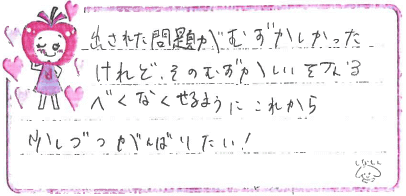 出された問題がむずかしかった
けれど、そのむずかしいをなる
べくなくせるように これから
少しづつがんばりたい!